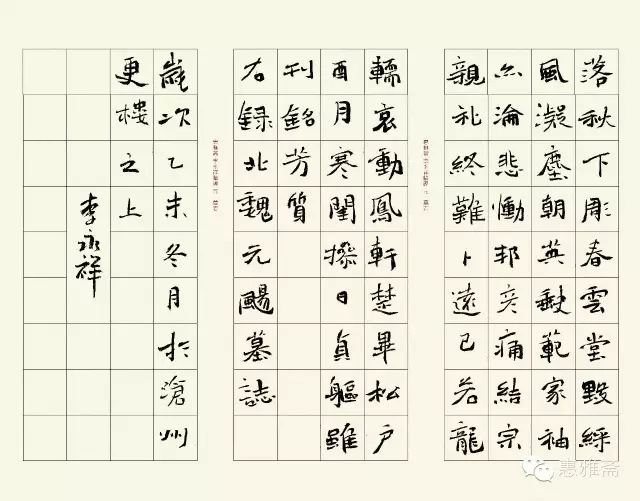 落秋下彫春雲堂黢綵
風凝塵朝英範家袖
亦淪悲慟邦彦痛結宗
親礼終難卜遠已若龍
轜哀動鳳軒楚畢松户
酉月寒閨日貞軀雖
刊銘芳質
右録北魏元颺墓誌
歲次乙未冬月於滄州
更樓之上
李永祥
惠雅斋